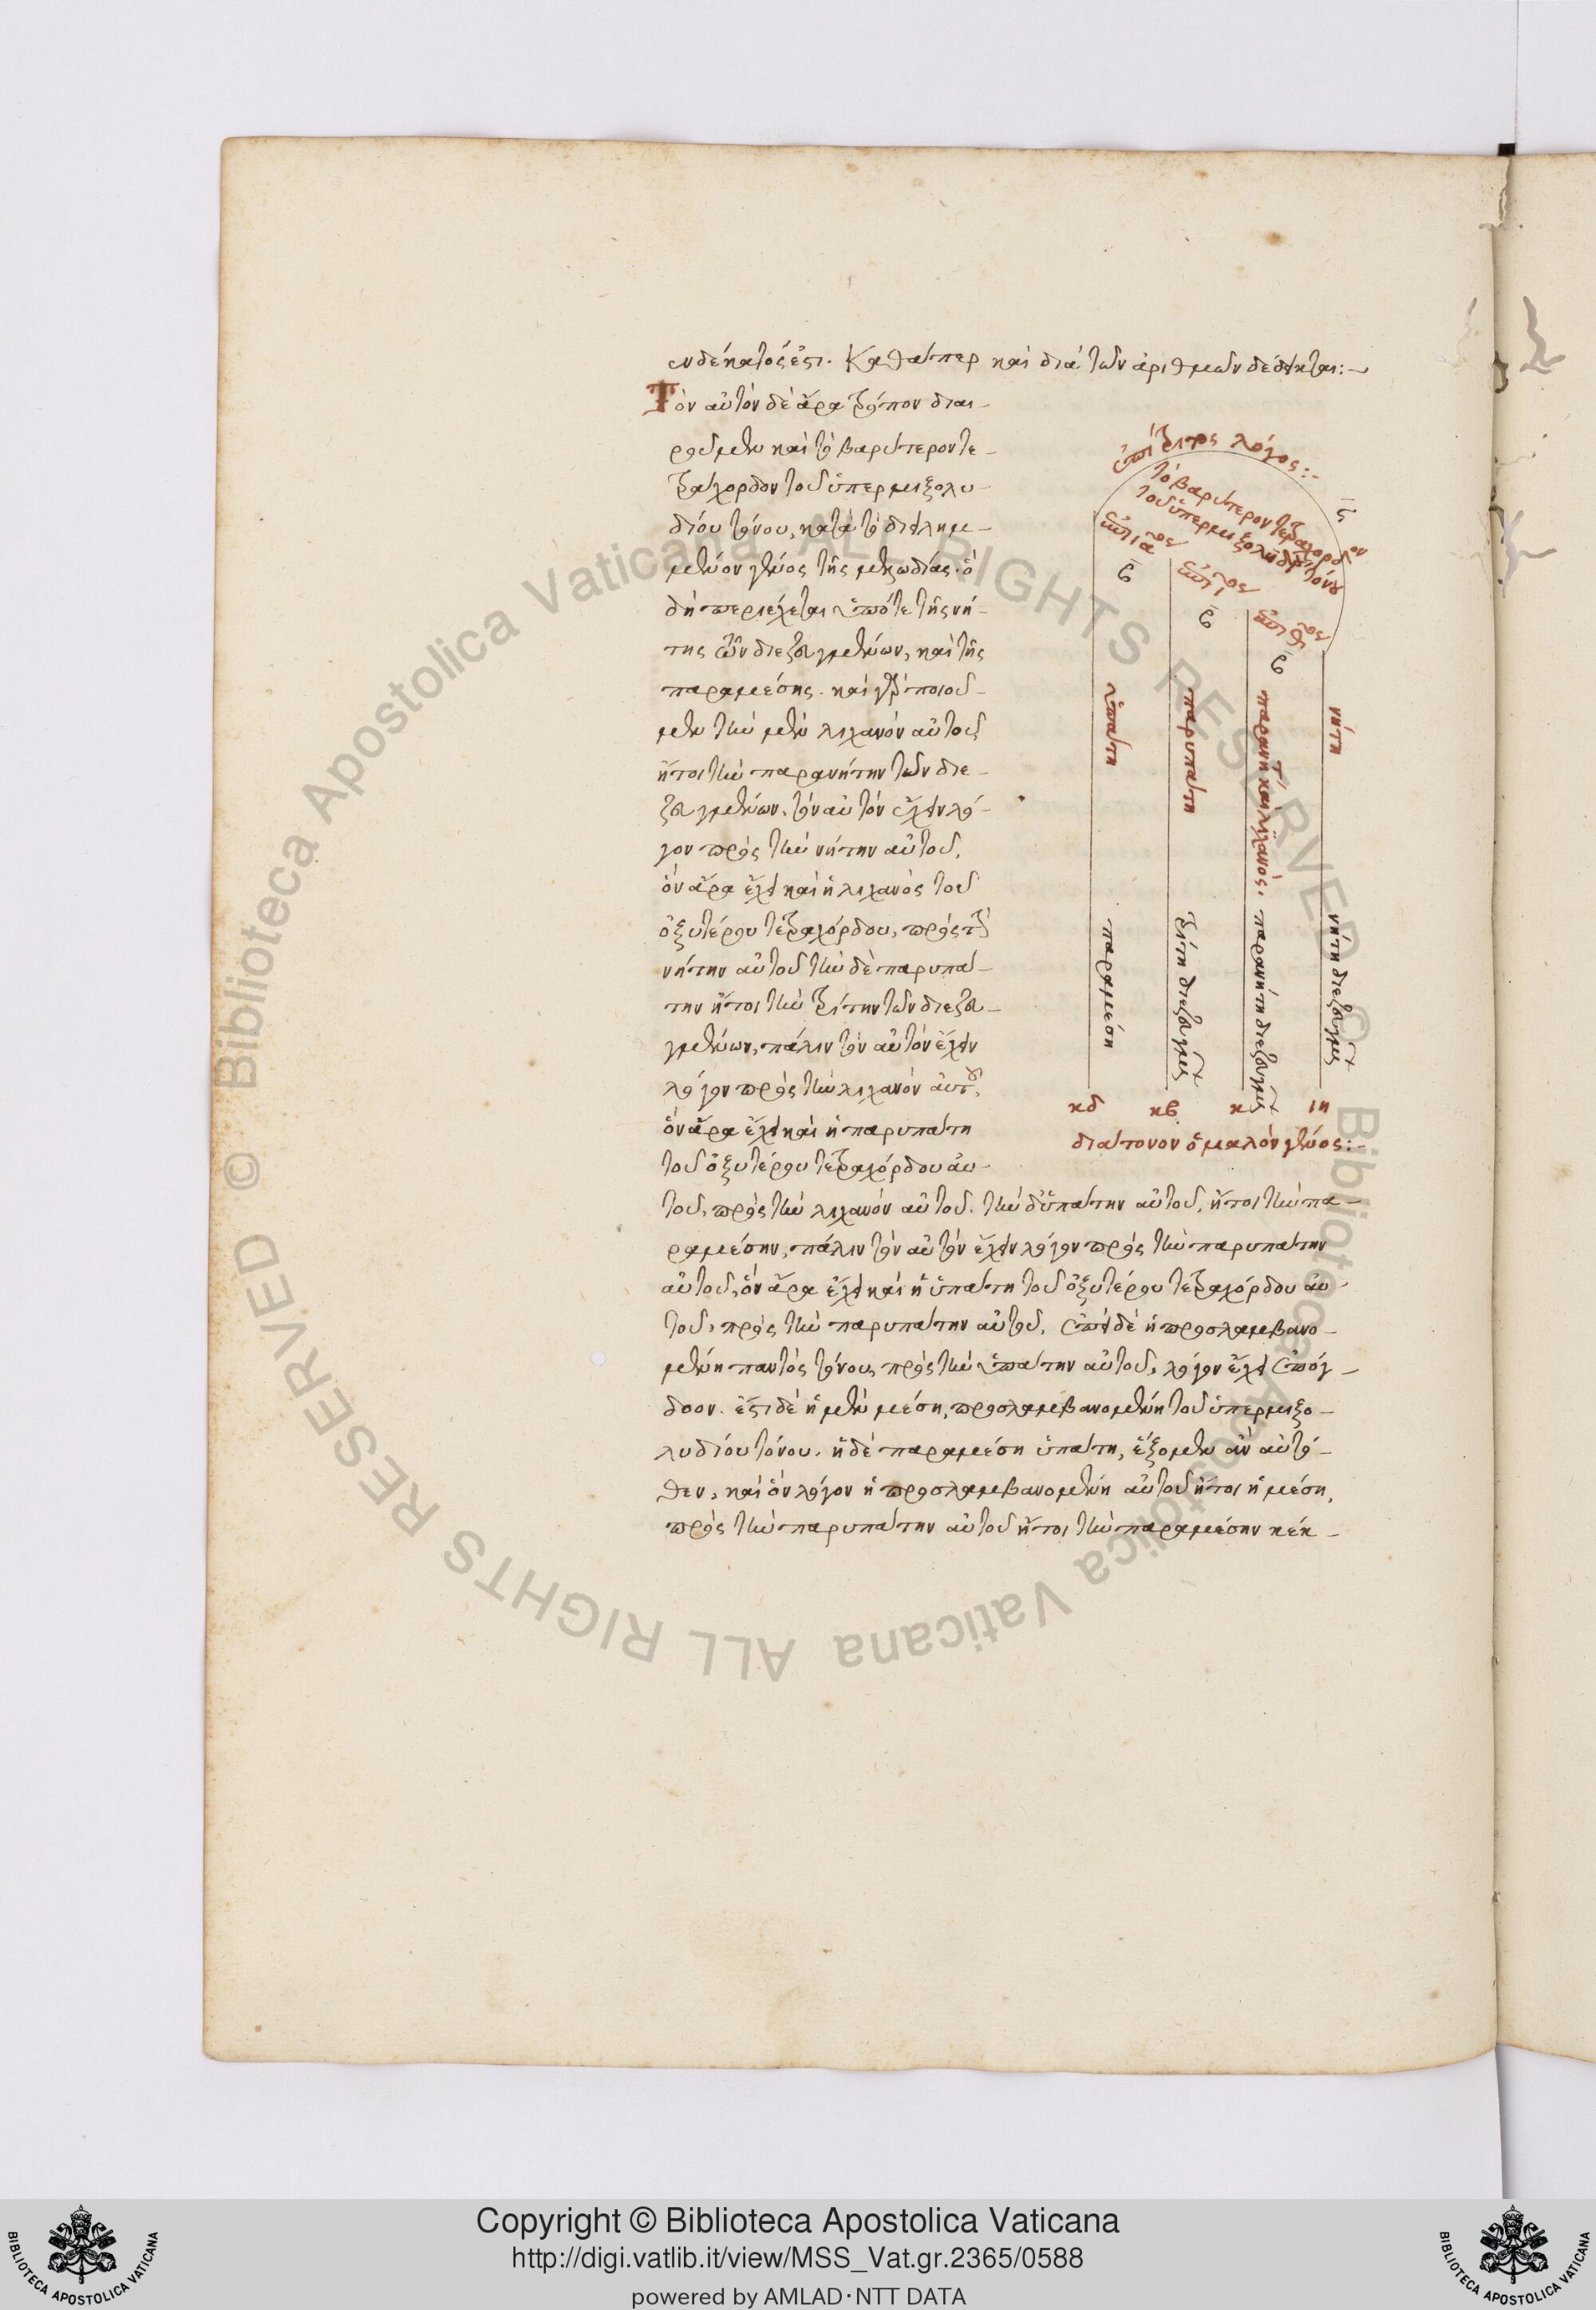 ενδέκατός ἐστι. καθάπερ καὶ διὰ τῶν ἀριθμῶν δέδεικται:~
Τὸν αὐτὸν δὲ ἄρα τρόπον διαι-
ροῦμεν καὶ τὸ βαρύτερον τε-
τράχορδον τοῦ ὑπερμιξολυ-
δίου τόνου, κατὰ τὸ διειλημ-
μένον γένος τῆς μελῳδίας. ὁ
δὴ περιέχεται ὑπό τε τῆς νή-
της τῶν διεζευγμένων, καὶ τῆς
παραμέσης. καὶ
μεν τὴν μὲν λιχανὸν αὐτοῦ
ἤτοι τὴν παρανήτην τῶν διε-
ζευγμένων, τὸν αὐτὸν ἔχειν λό-
γον πρὸς τὴν νήτην αὐτοῦ,
ὃν ἄρα ἔχει καὶ ἡ λιχανὸς τοῦ
ὀξυτέρου τετραχόρδου, πρὸς τὴν
νήτην αὐτοῦ τὴν δὲ παρυπά-
την ἤτοι τὴν τρίτην τῶν διεζευ-
γμένων, πάλιν τὸν αὐτὸν ἔχειν
λόγον πρὸς τὴν λιχανὸν αὐτοῦ,
ὃν ἄρα ἔχει καὶ ἡ παρυπάτη
τοῦ ὀξυτέρου τετραχόρδου αὐ-
τοῦ, πρὸς τὴν λιχανὸν αὐτοῦ. τὴν δ' ὑπάτην αὐτοῦ, ἤτοι τὴν πα-
ραμέσην, πάλιν τὸν αὐτὸν ἔχειν λόγον πρὸς τὴν παρυπάτην
αὐτοῦ, ὃν ἄρα ἔχει καὶ ἡ ὑπάτη τοῦ ὀξυτέρου τετραχόρδου αὐ-
τοῦ, πρὸς τὴν παρυπάτην αὐτοῦ. ἐπεὶ δὲ ἡ προσλαμβανο-
μένη παντὸς τόνου, πρὸς τὴν ὑπάτην αὐτοῦ, λόγον ἔχει ἐπόγ-
δοον. ἔστι δὲ ἡ μὲν μέση, προσλαμβανομένη τοῦ ὑπερμιξο-
λυδίου τόνου. ἡ δὲ παραμέση ὑπάτη, ἕξομεν ἂν αὐτό-
θεν, καὶ ὃν λόγον ἡ προσλαμβανομένη αὐτοῦ ἤτοι ἡ μέση,
πρὸς τὴν παρυπάτην αὐτοῦ ἤτοι τὴν παραμέσην κέκ-
ἐπίτριτος λόγος:~
τὸ βαρύτερον τετράχορδον
τοῦ ὑπερμιξολυδίου τόνου
ϛ
ἐπιιατος
ἐπιιος
ἐπιθτος
β
β
β
ὑπάτη
παρυπάτη
παρανήτη καὶ λιχανός,
νήτη
παραμέση
τρίτη διεζευγμένων
παρανήτη διεζευγμένων
νήτη διεζευγμένων
κδ κβ κ ιη
διάτονον ὁμαλὸν γένος:~
© Biblioteca Apostolica Vaticana ALL RIGHTS RESERVED © Biblioteca Apostolica Vaticana ALL RIGHTS RESERVED
Copyright © Biblioteca Apostolica Vaticana
http://digi.vatlib.it/view/MSS_Vat.gr.2365/0588
powered by AMLAD·NTT DATA
BIBLIOTECA APOSTOLICA VATICANA
BIBLIOTECA APOSTOLICA VATICANA